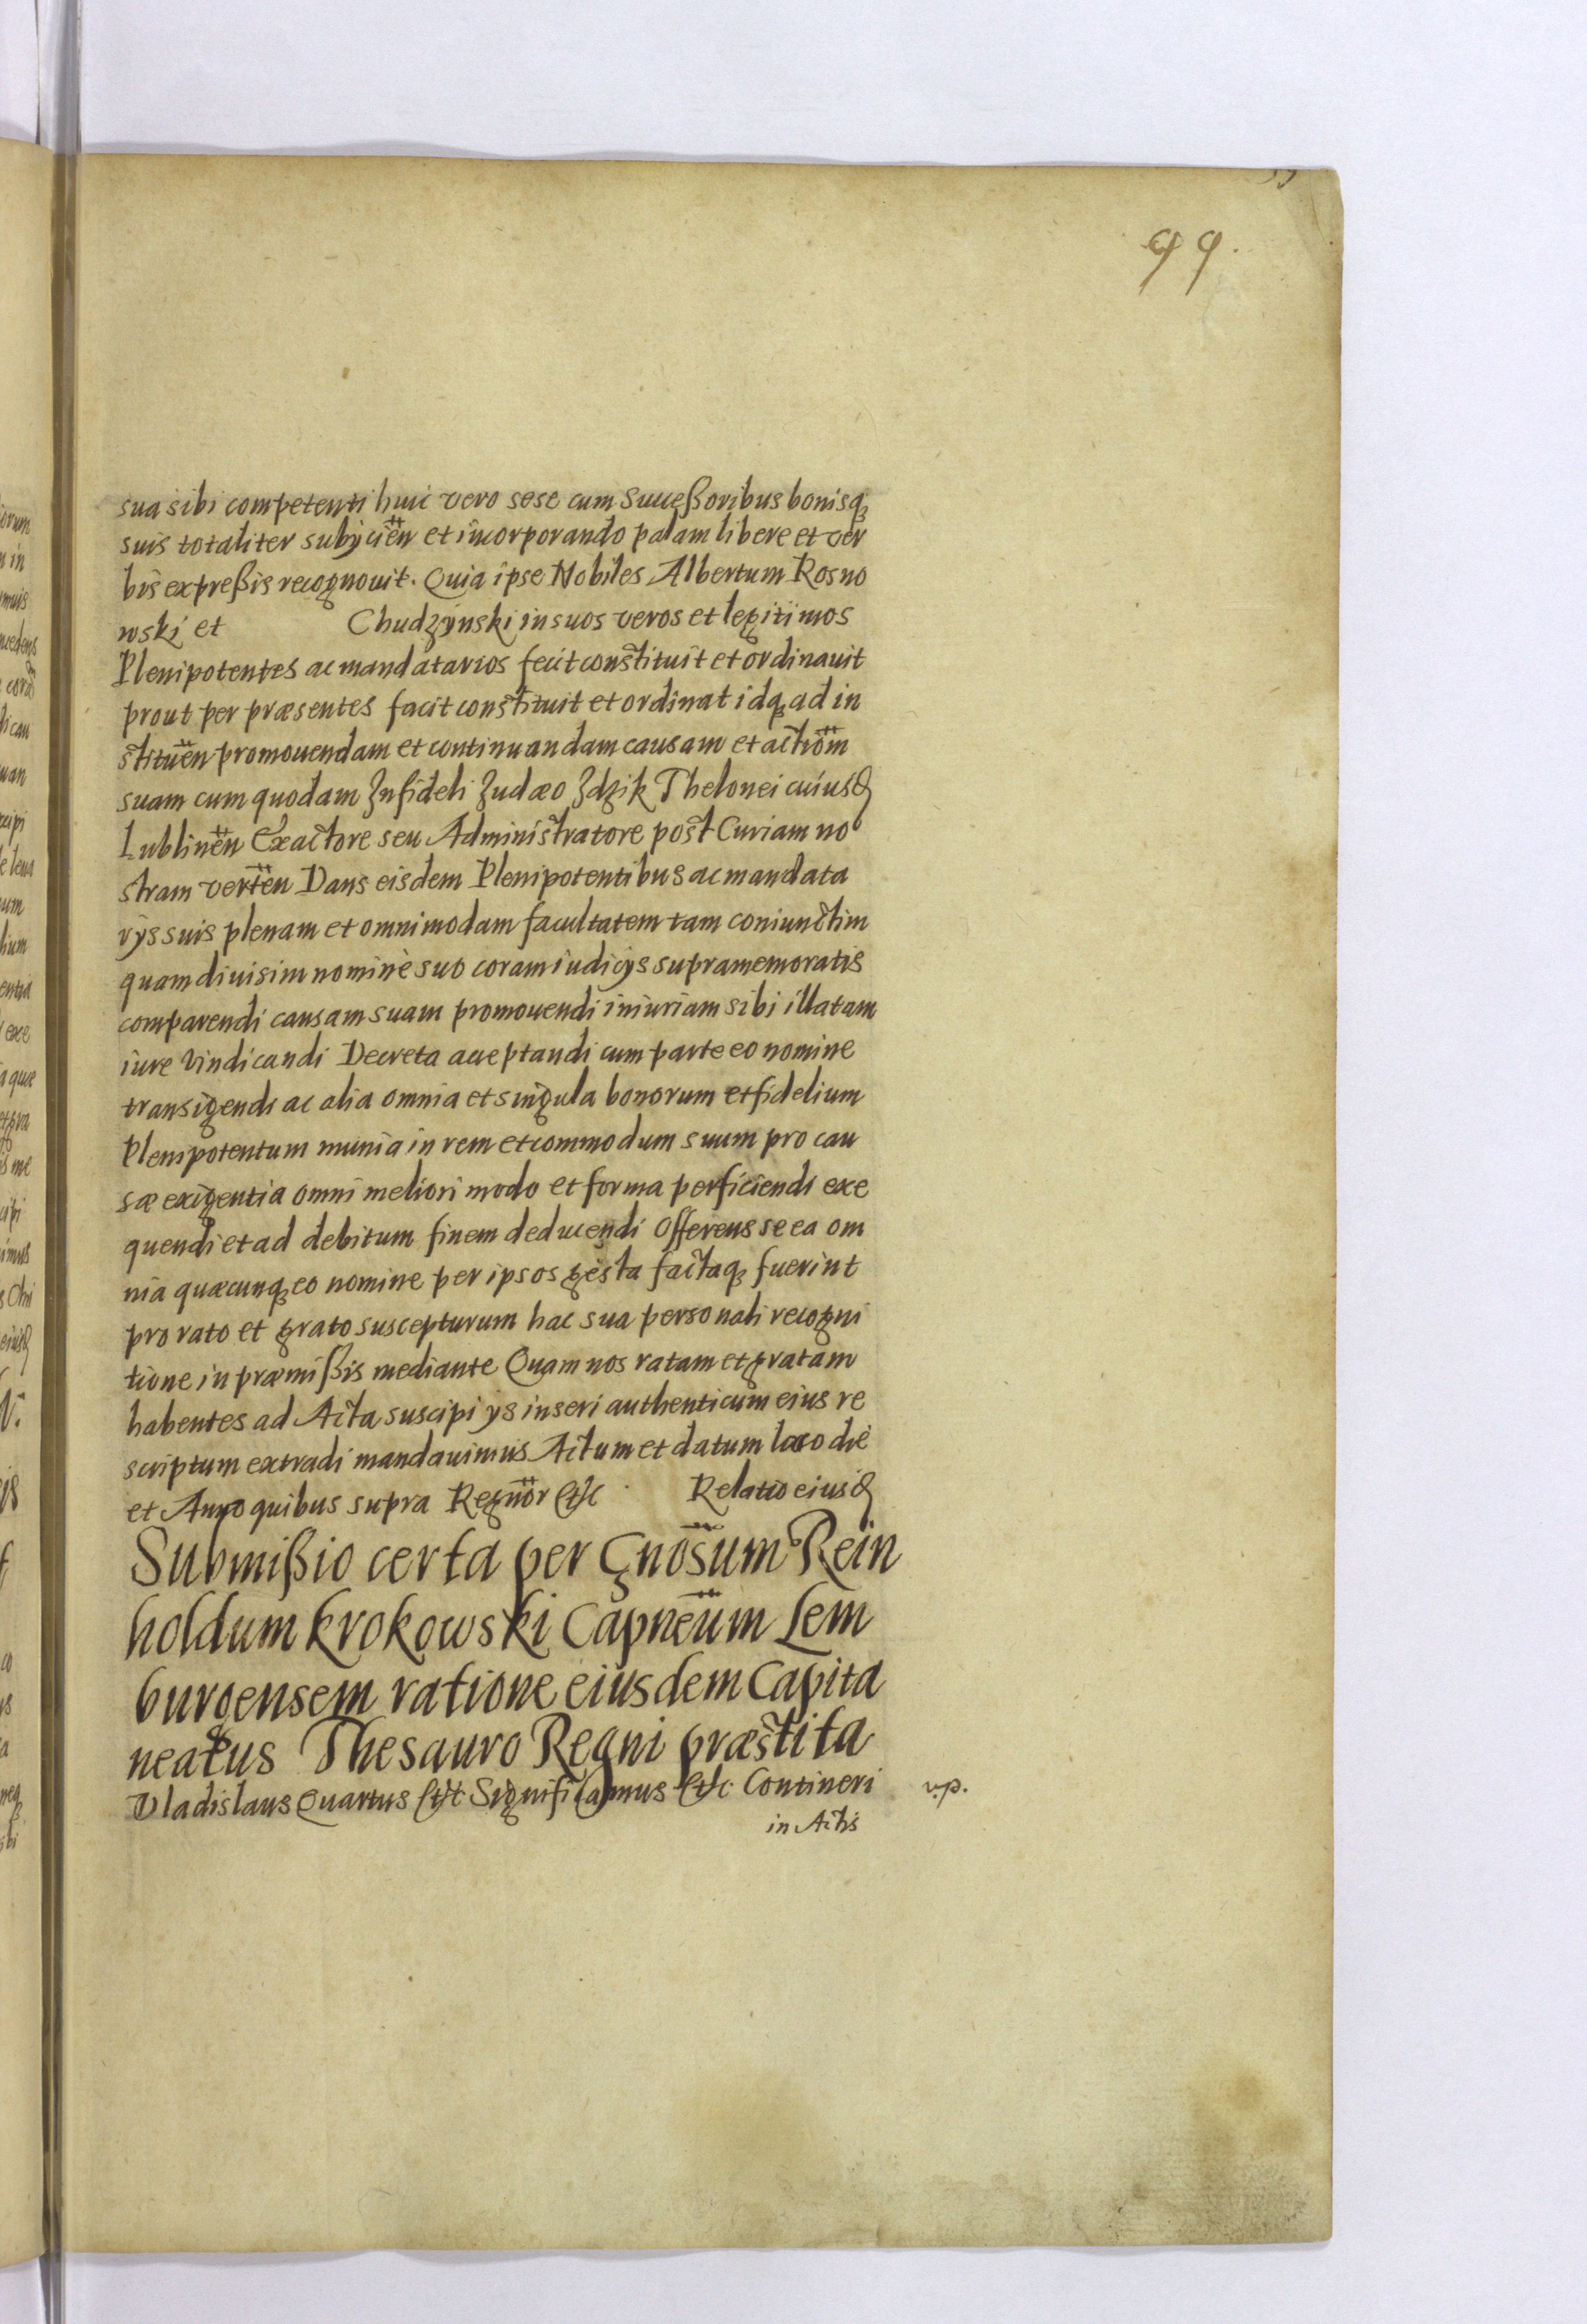 99.
sua sibi competenti huic vero sese cum Succeßoribus bonisq;
suis totaliter subÿcieñ et incorporando palam libere et ver
bis expreßis recognouit. Quia ipse Nobiles Albertum Rosno
wski et Chudzÿnski in suos veros et legitimos
Plenipotentes ac mandatarios fecit constituit et ordinauit
prout per præsentes facit constituit et ordinat idq; ad in
stitueñ promouendam et continuandam causam et actiom̃
suam cum quodam Infideli Iudæo Idzik Thelonei cuiusd
Lublineñ Exactore seu Administratore post Curiam no
stram verteñ Dans eisdem Plenipotentibus ac mandata
rÿs suis plenam et omnimodam facultatem tam coniunctim
quam diuisim nomine suo coram iudicÿs supramemoratis
comparendi causam suam promouendi iniuriam sibi illatam
iure vindicandi Decreta acceptandi cum parte eo nomine
transigendi ac alia omnia et singula bonorum et fidelium
Plenipotentum munia in rem et commodum suum pro cau
sæ exigentia omni meliori modo et forma perficiendi exe
quendi et ad debitum finem deducendi Offerens se ea om
nia quæcunq; eo nomine per ipsos gesta factaq; fuerint
pro rato et grato suscepturum hac sua personali recogni
tione in præmißis mediante Quam nos ratam et gratam
habentes ad Acta suscipi ÿs inseri authenticum eius re
scriptum extradi mandauimus Actum et datum loco die
et Anno quibus supra Regnor̃ etc Relatio eiusd
Submißio certa per Gnos̃um Rein
holdum Krokowski Capneũm Lem
burgensem ratione eiusdem Capita
neatus Thesauro Regni præstita
Vladislaus Quartus etc Significamus etc Contineri v.p.
in Actis